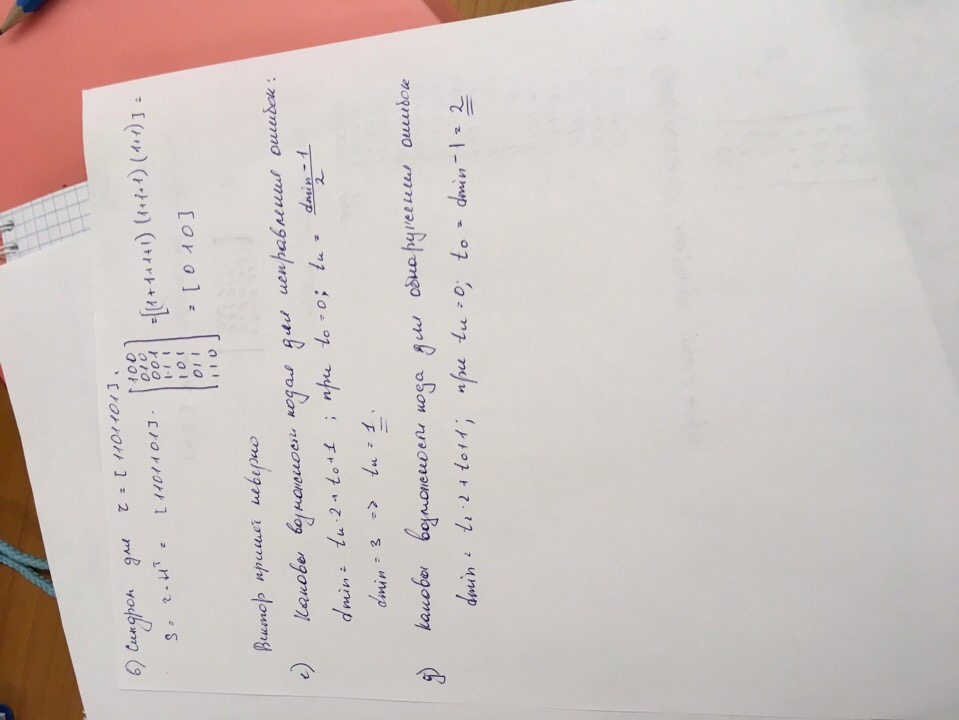 в) Синдром для r = [1101101].
S = r·Hᵀ = [1101101]·
100
010
001
111
101
011
110
= [(1+1+1+1) (1+1+1) (1+1)] =
= [010]
Вектор принят неверно
с) Каковы возможности кодая для исправления ошибок:
dmin = tи·2 + to+1 ; при to=0; tи = (dmin-1)/2
dmin = 3 => tи = 1.
д) Каковы возможности кода для обнаружения ошибок
dmin = tи·2 + to+1; при tи=0; to = dmin-1 = 2